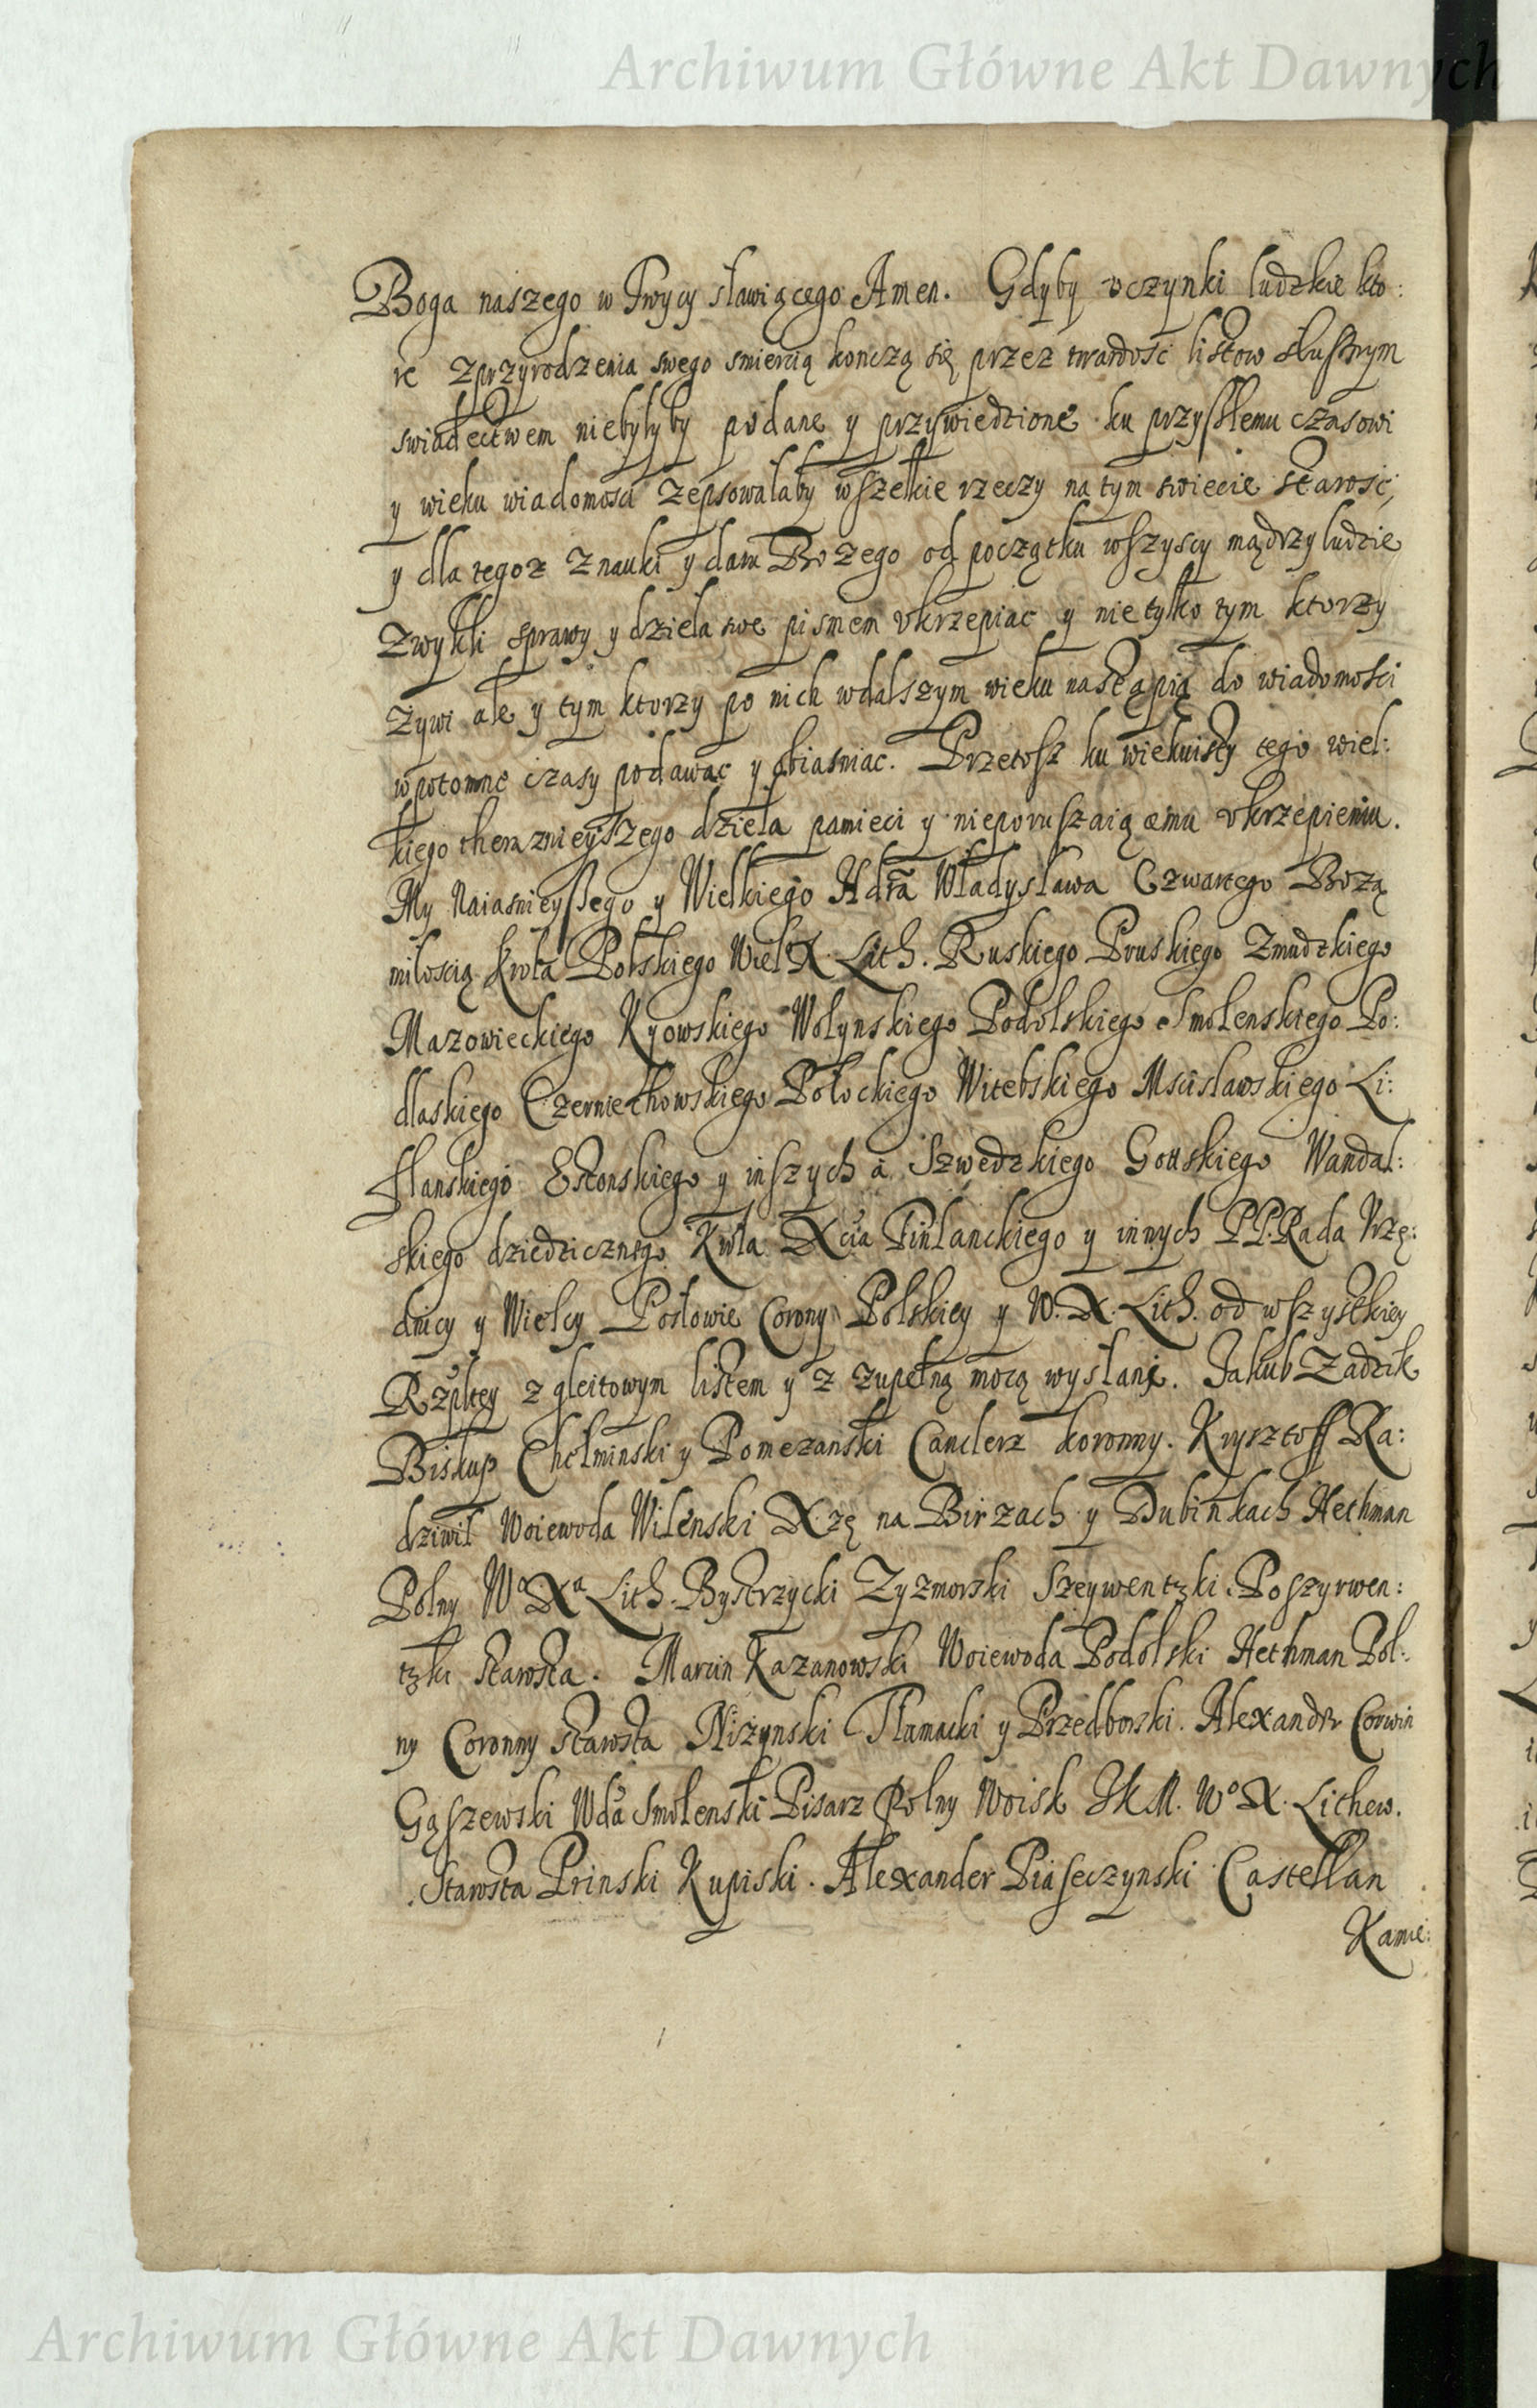 Archiwum Główne Akt Dawnych
Boga naszego w Troycy sławiącego Amen. Gdyby uczynki ludzkie kto:
re z przyrodzenia swego smiercią konczą się przez twardość listow słusznym
swiadectwem niebyłyby podane y przywiedzione ku przyszłemu czasowi
y wieku wiadomosci zepsowałaby wszelkie rzeczy na tym swiecie starosć,
y dla tegoz z nauki y daru Bozego od początku wszyscy mądrzy ludzie
zwykli sprawy y dzieła swe pismem vkrzepiac y nie tylko tym ktorzy
żywi ale y tym ktorzy po nich w dalszym wieku nastąpią do wiadomosci
w potomne czasy podawac y obiasniac. Przetosz ku wiekuisty tego wiel:
kiego theraznieyszego dzieła pamieci y nieporuszaiącemu vkrzepieniu.
My Naiasnieyszego y Wielkiego Hdra Władysława Czwartego Bozą
miłoscią Krola Polskiego Wiel. X. Lith. Ruskiego Pruskiego Zmudzkiego
Mazowieckiego Kyowskiego Wołynskiego Podolskiego Smolenskiego Po:
dlaskiego Czerniechowskiego Połockiego Witebskiego Mscisławskiego Li:
flanskiego Estonskiego y inszych a Szwedzkiego Gottskiego Wandal:
skiego dziedzicznego Krola Xcia Finlanckiego y innych PP. Rada Vrzę:
dnicy y Wielcy Posłowie Corony Polskiey y W. X. Lith. od wszystkiey
Rzpltey z gleitowym listem y z zupełną mocą wysłani. Jakub Zadzik
Biskup Chełminski y Pomezanski Canclerz koronny. Krysztoff Ra:
dziwił Woiewoda Wilenski X.żę na Birzach y Dubinkach Hethman
Polny Wo Xa Lith. Bystrzycki Zyzmorski Szeywentzki Poszyrwen:
tzki starosta. Marcin Kazanowski Woiewoda Podolski Hethman Pol:
ny Coronny starosta Niżynski Tłumacki y Przedborski. Alexandr Corwin
Gąszewski Wda Smolenski Pisarz Polny Woisk JKM. Wo X. Lithew.
Starosta Prinski Kupiski. Alexander Piaseczynski Castellan
Kamie:
Archiwum Główne Akt Dawnych